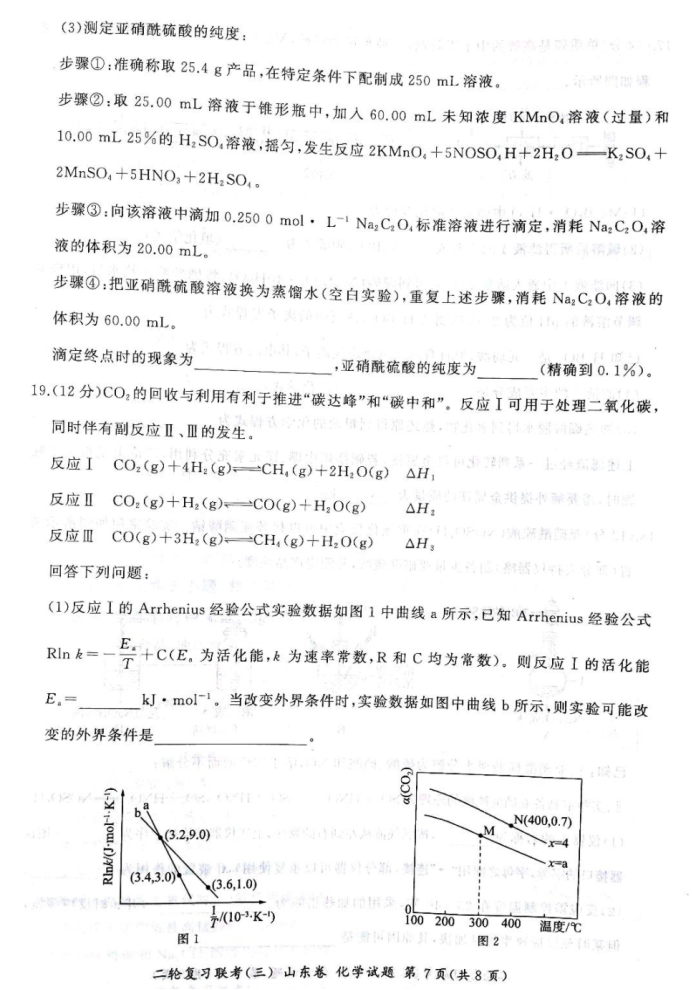 (3)测定亚硝酰硫酸的纯度:
步骤①:准确称取 25.4 g 产品,在特定条件下配制成 250 mL 溶液。
步骤②:取 25.00 mL 溶液于锥形瓶中,加入 60.00 mL 未知浓度 KMnO₄溶液(过量)和
10.00 mL 25%的 H₂SO₄溶液,摇匀,发生反应 2KMnO₄+5NOSO₄H+2H₂O══K₂SO₄+
2MnSO₄+5HNO₃+2H₂SO₄。
步骤③:向该溶液中滴加 0.250 0 mol·L⁻¹ Na₂C₂O₄标准溶液进行滴定,消耗 Na₂C₂O₄溶
液的体积为 20.00 mL。
步骤④:把亚硝酰硫酸溶液换为蒸馏水(空白实验),重复上述步骤,消耗 Na₂C₂O₄溶液的
体积为 60.00 mL。
滴定终点时的现象为____________,亚硝酰硫酸的纯度为________(精确到 0.1%)。
19.(12 分)CO₂的回收与利用有利于推进“碳达峰”和“碳中和”。反应Ⅰ可用于处理二氧化碳,
同时伴有副反应Ⅱ、Ⅲ的发生。
反应Ⅰ CO₂(g)+4H₂(g)⇌CH₄(g)+2H₂O(g) ΔH₁
反应Ⅱ CO₂(g)+H₂(g)⇌CO(g)+H₂O(g) ΔH₂
反应Ⅲ CO(g)+3H₂(g)⇌CH₄(g)+H₂O(g) ΔH₃
回答下列问题:
(1)反应Ⅰ的 Arrhenius 经验公式实验数据如图 1 中曲线 a 所示,已知 Arrhenius 经验公式
Rln k=-Eₐ/T+C(Eₐ 为活化能,k 为速率常数,R 和 C 均为常数)。则反应Ⅰ的活化能
Eₐ=________kJ·mol⁻¹。当改变外界条件时,实验数据如图中曲线 b 所示,则实验可能改
变的外界条件是____________。
Rlnk/(J·mol⁻¹·K⁻¹)
b
a
(3.2,9.0)
(3.4,3.0)
(3.6,1.0)
1/T/(10⁻³·K⁻¹)
图 1
α(CO₂)
N(400,0.7)
M
x=4
x=a
0
100 200 300 400 温度/℃
图 2
二轮复习联考(三) 山东卷 化学试题 第 7 页(共 8 页)